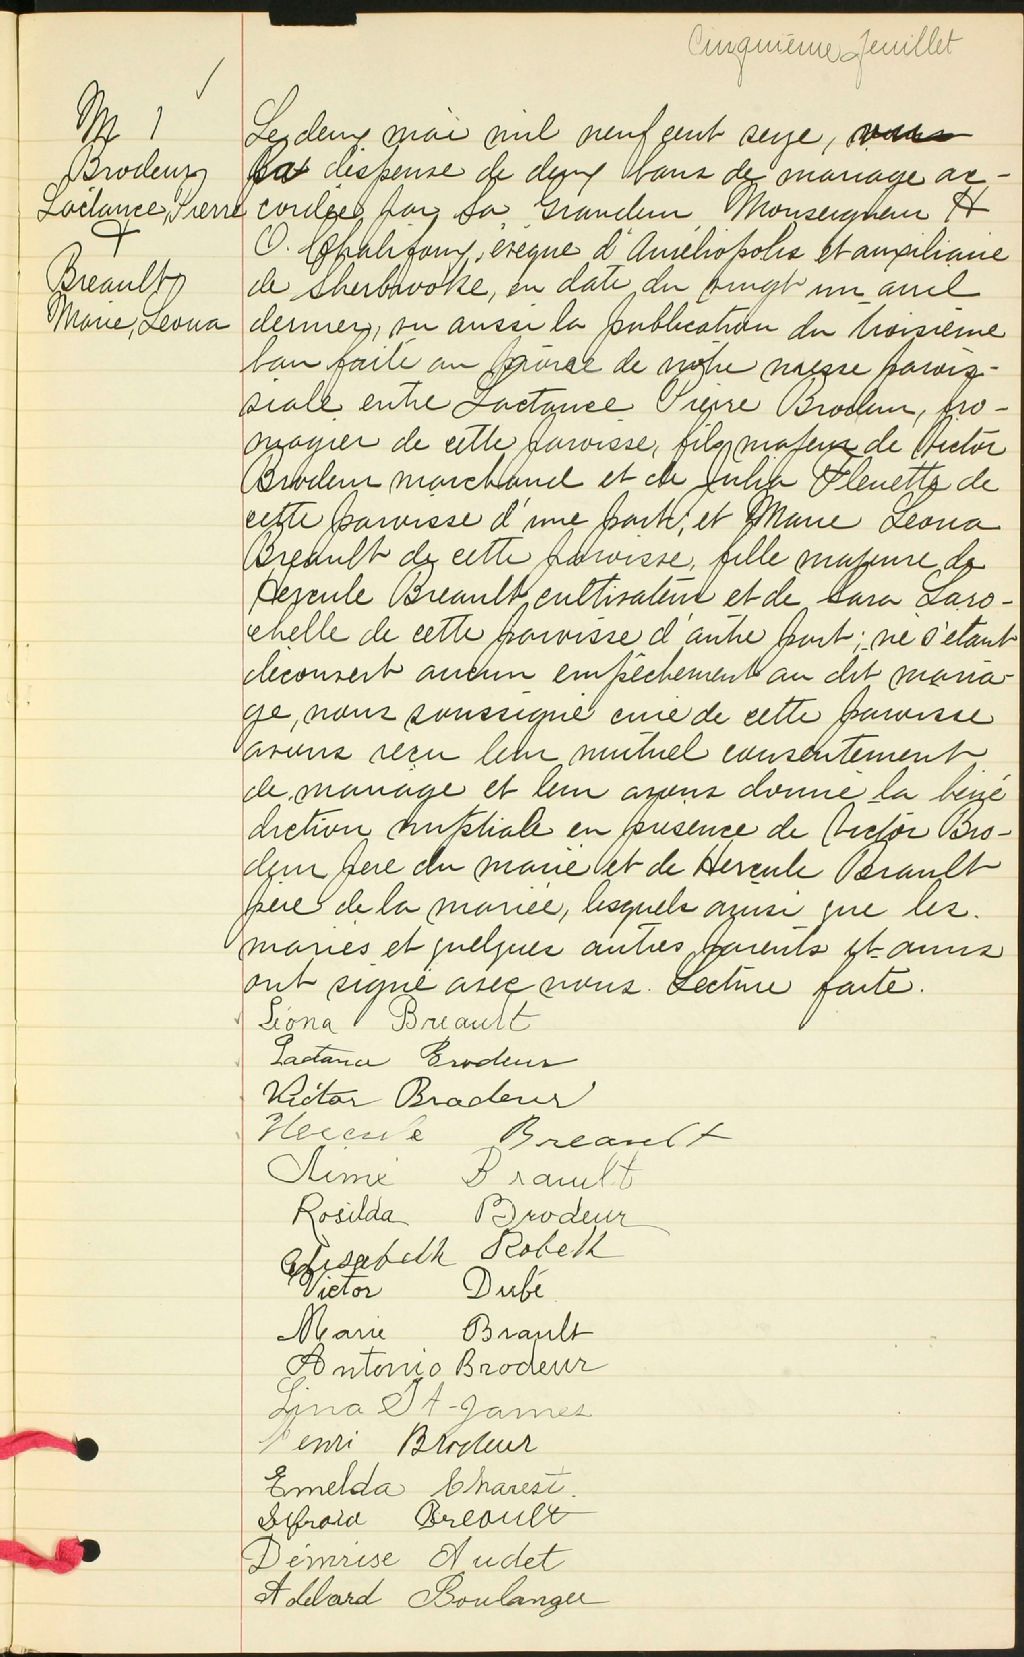 Cinquième feuillet
M 1
Brodeur
Lactance, Pierre
+
Breault
Marie, Leona
Le deux mai mil neuf cent seize,
la dispense de deux bans de mariage ac-
cordée par Sa Grandeur Monseigneur H
O. Chalifoux, évêque d'Auréliopolis et auxiliaire
de Sherbrooke, en date du vingt un avril
dernier, vu aussi la publication du troisième
ban faite au prône de notre messe parois-
siale entre Lactance Pierre Brodeur, fro-
magier de cette paroisse, fils majeur de Victor
Brodeur marchand et de Julia de
cette paroisse d'une part; et Marie Leona
Breault de cette paroisse, fille majeure de
Hercule Breault cultivateur et de Sara Laro-
chelle de cette paroisse d'autre part; ne s'étant
découvert aucun empêchement au dit maria-
ge, nous soussigné curé de cette paroisse
avons reçu leur mutuel consentement
de mariage et leur avons donné la béné
diction nuptiale en présence de Victor Bro-
deur père du marié et de Hercule Brault
père de la mariée, lesquels ainsi que les
mariés et quelques autres parents et amis
ont signé avec nous. Lecture faite.
Léona Breault
Lactance Brodeur
Victor Brodeur
Hercule Breault
Aimé Brault
Rosilda Brodeur
Elisabeth Robeth
Victor Dubé
Marie Brault
Antonio Brodeur
Lina St-James
Henri Brodeur
Emelda Charest.
Breault
Démrise Audet
Adélard Boulanger